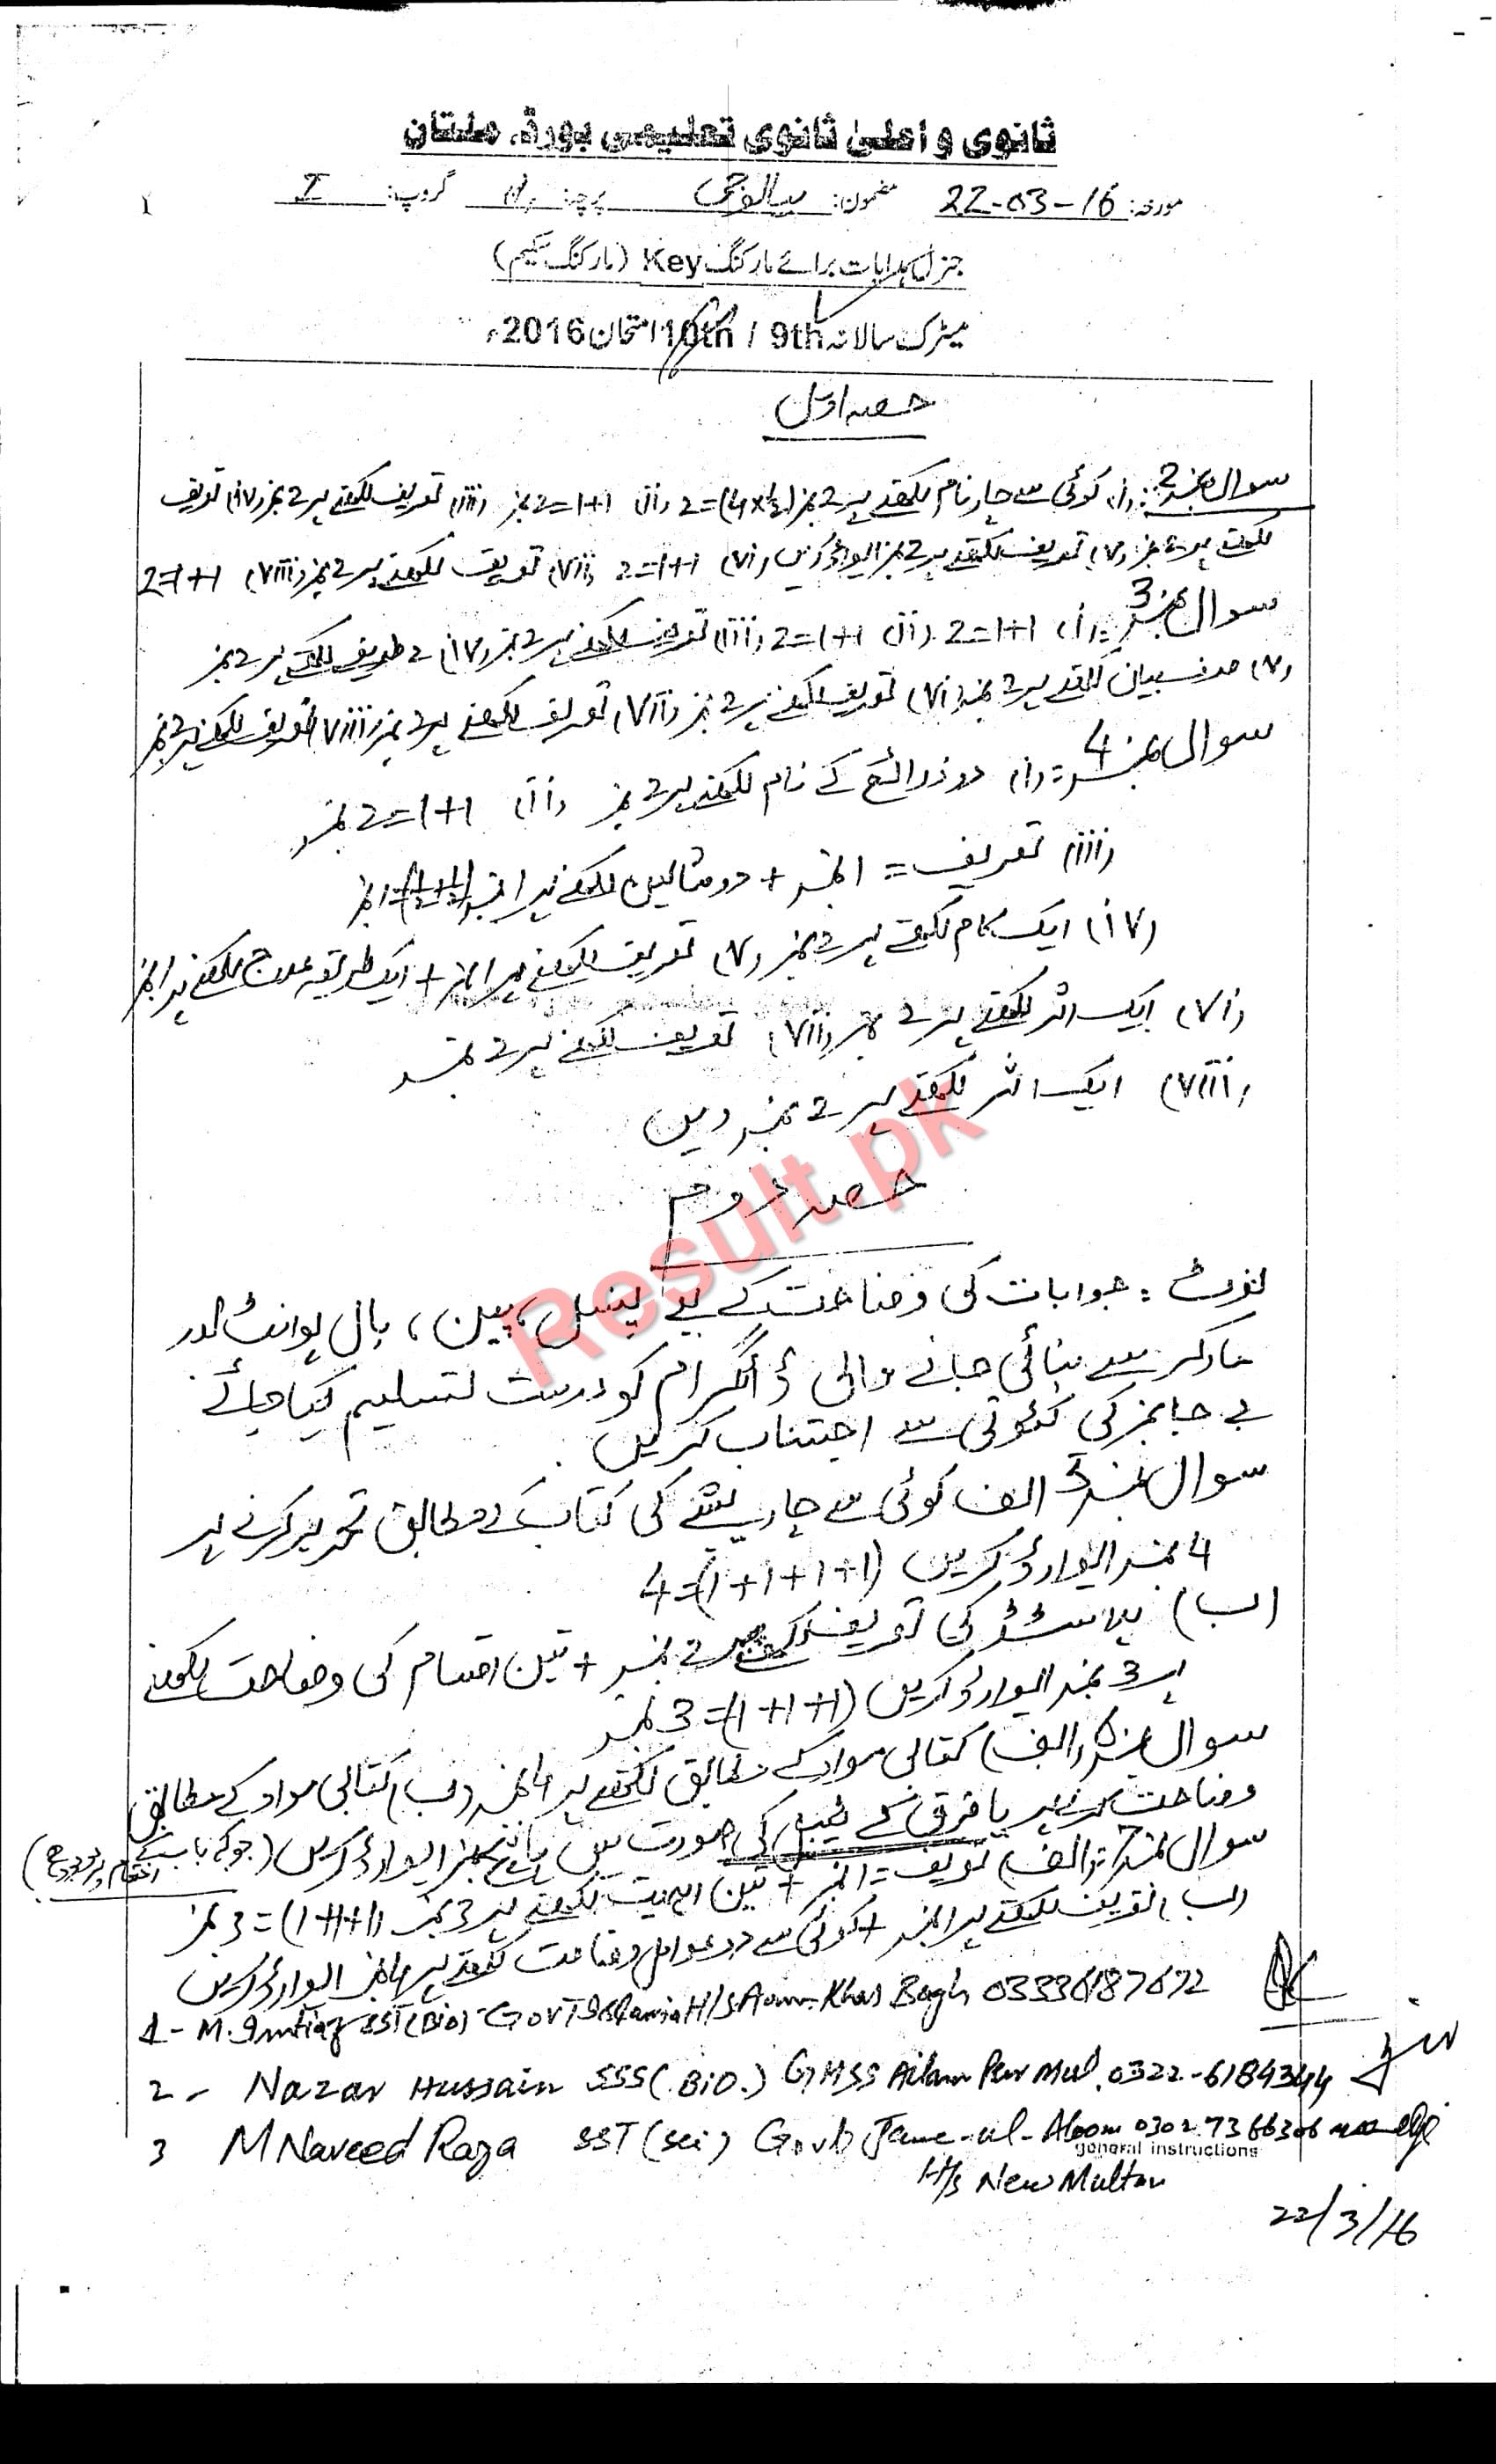 ثانوی و اعلیٰ ثانوی تعلیمی بورڈ، ملتان
مورخہ: 22-03-16 مضمون: بیالوجی پرچہ: گروپ: I
جنرل ہدایات برائے مارکنگ Key (مارکنگ سکیم)
میٹرک سالانہ 9th / 10th امتحان 2016ء
حصہ اول
سوال نمبر 2: (i) کوئی سے چار نام لکھنے پر 2 نمبر (4×½)=2 (ii) 1+1=2 نمبر (iii) تعریف لکھنے پر 2 نمبر (iv) تعریف
لکھنے پر 2 نمبر (v) تعریف لکھنے پر 2 نمبر ایوارڈ کریں (vi) 1+1=2 (vii) تعریف لکھنے پر 2 نمبر (viii) 1+1=2
سوال نمبر 3: (i) 1+1=2 (ii) 1+1=2 (iii) تعریف لکھنے پر 2 نمبر (iv) 2 طریقے لکھنے پر 2 نمبر
(v) صرف بیان لکھنے پر 2 نمبر (vi) تعریف لکھنے پر 2 نمبر (vii) تعریف لکھنے پر 2 نمبر (viii) تعریف لکھنے پر 2 نمبر
سوال نمبر 4: (i) دو ذرائع کے نام لکھنے پر 2 نمبر (ii) 1+1=2 نمبر
(iii) تعریف = 1 نمبر + دو مثالیں لکھنے پر 1 نمبر (½+½)=1 نمبر
(iv) ایک کام لکھنے پر 2 نمبر (v) تعریف لکھنے پر 1 نمبر + ایک طریقہ علاج لکھنے پر 1 نمبر
(vi) ایک اثر لکھنے پر 2 نمبر (vii) تعریف لکھنے پر 2 نمبر
(viii) ایک اثر لکھنے پر 2 نمبر دیں
حصہ دوم
نوٹ: جوابات کی وضاحت کے لیے پینسل، پین، بال پوائنٹ اور
مارکر سے بنائی جانے والی ڈائیگرام کو درست تسلیم کیا جائے
بے جا نمبر کی کٹوتی سے اجتناب کریں
سوال نمبر 5 الف کوئی سے چار کی کتاب کے مطابق تحریر کرنے پر
4 نمبر ایوارڈ کریں (1+1+1+1)=4
(ب) کی تعریف لکھنے پر 2 نمبر + تین اقسام کی وضاحت لکھنے
پر 3 نمبر ایوارڈ کریں (1+1+1)=3 نمبر
سوال نمبر 6 (الف) کتابی مواد کے مطابق لکھنے پر 4 نمبر (ب) کتابی مواد کے مطابق
وضاحت کرنے پر یا فرق کے ٹیبل کی صورت میں نمبر ایوارڈ کریں (جو کہ باب کے اختتام پر درج ہے)
سوال نمبر 7: (الف) تعریف = 1 نمبر + تین اہمیت لکھنے پر 3 نمبر (1+1+1)=3 نمبر
(ب) تعریف لکھنے پر 1 نمبر + کوئی سے دو عوامل وضاحت لکھنے پر 4 نمبر ایوارڈ کریں
1- M. Imtiaz SST (Bio) Govt Islamia H/S Aam Khas Bagh 03336187672
2 - Nazar Hussain SSS (BiO.) GHSS Mul. 0322-6184344
3 M Naveed Raza SST (sci) Govt Jame-ul-Aloom 0302 7366306
general instructions
H/s New Multan
22/3/16
Result.pk